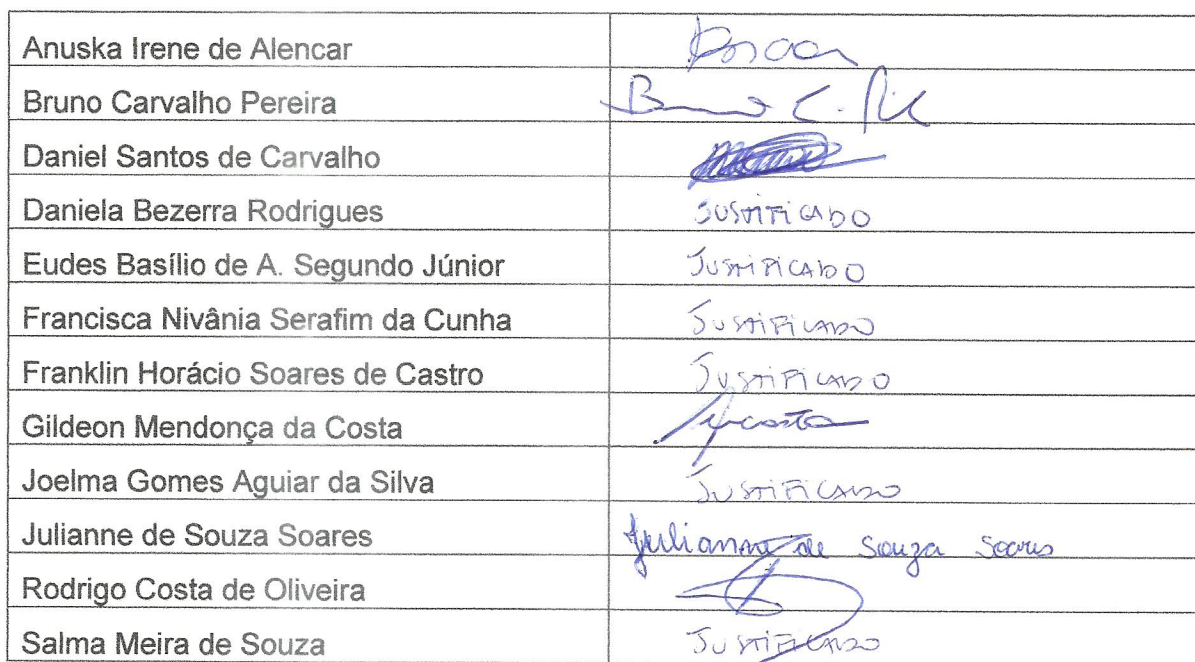 Anuska Irene de Alencar
Bruno Carvalho Pereira Bruno C.
Daniel Santos de Carvalho
Daniela Bezerra Rodrigues JUSTIFICADO
Eudes Basílio de A. Segundo Júnior JUSTIFICADO
Francisca Nivânia Serafim da Cunha JUSTIFICADO
Franklin Horácio Soares de Castro JUSTIFICADO
Gildeon Mendonça da Costa
Joelma Gomes Aguiar da Silva JUSTIFICADO
Julianne de Souza Soares Julianne de Souza Soares
Rodrigo Costa de Oliveira
Salma Meira de Souza JUSTIFICADO